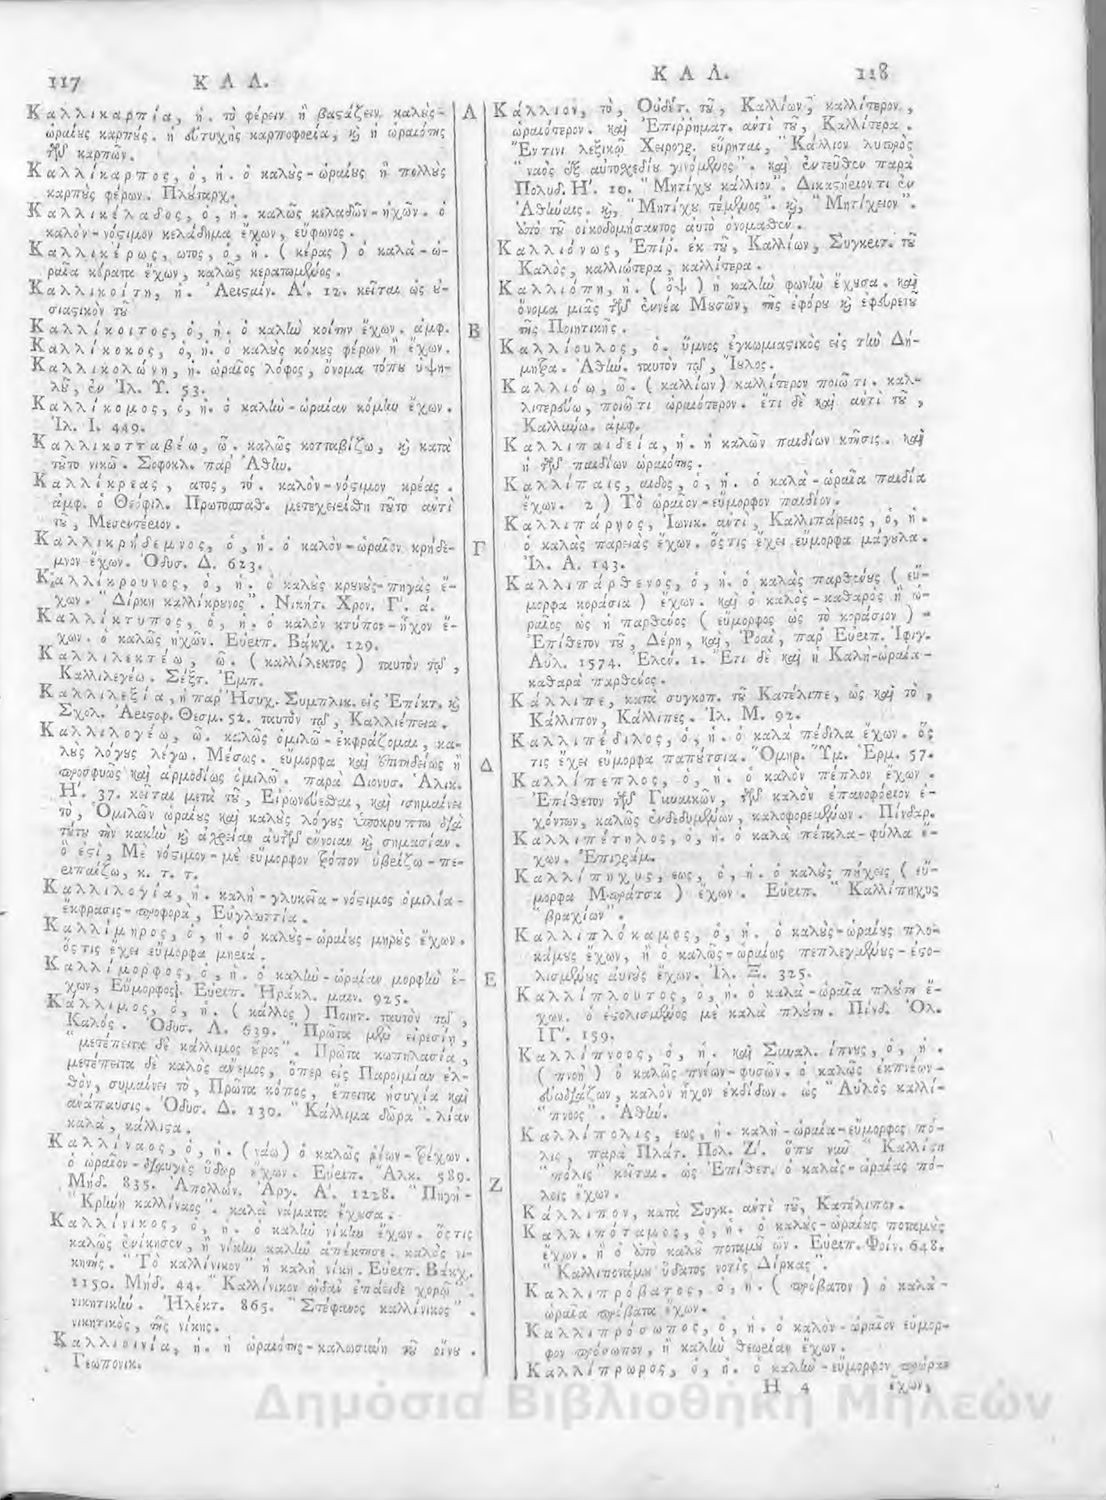 117 Κ Α Λ.
Καλλικαρπία, ἡ. τὸ φέρειν ἢ βαστάζειν καλοὺς-
ὡραίους καρπούς. ἡ εὐτυχὴς καρποφορία, καὶ ἡ ὡραιότης
τῶν καρπῶν.
Καλλίκαρπος, ὁ, ἡ. ὁ καλοὺς-ὡραίους ἢ πολλοὺς
καρποὺς φέρων. Πλούταρχ.
Καλλικέλαδος, ὁ, ἡ. καλῶς κελαδῶν-ἠχῶν. ὁ
καλὸν-νόστιμον κελάδημα ἔχων, εὔφωνος.
Καλλικέρως, ωτος, ὁ, ἡ. (κέρας) ὁ καλὰ-ὡ-
ραῖα κέρατα ἔχων, καλῶς κερατωμένος.
Καλλικοίτη, ἡ. Ἀρισταίν. Α΄. 12. κεῖται ὡς οὐ-
σιαστικὸν τοῦ
Καλλίκοιτος, ὁ, ἡ. ὁ καλὴν κοίτην ἔχων. ἀμφ.
Καλλίκοκος, ὁ, ἡ. ὁ καλοὺς κόκους φέρων ἢ ἔχων.
Καλλικολώνη, ἡ. ὡραῖος λόφος, ὄνομα τόπου ὑψη-
λοῦ, ἐν Ἰλ. Υ. 53.
Καλλίκομος, ὁ, ἡ. ὁ καλὴν-ὡραίαν κόμην ἔχων.
Ἰλ. Ι. 449.
Καλλικοτταβέω, ῶ. καλῶς κοτταβίζω, καὶ κατὰ
τοῦτο νικῶ. Σοφοκλ. παρ' Ἀθην.
Καλλίκρεας, ατος, τό. καλὸν-νόστιμον κρέας.
ἀμφ. ὁ Θεόφιλ. Πρωτοσπαθ. μετεχειρίσθη τοῦτο ἀντὶ
τοῦ, Μεσεντέριον.
Καλλικρήδεμνος, ὁ, ἡ. ὁ καλὸν-ὡραῖον κρήδε-
μνον ἔχων. Ὀδυσ. Δ. 623.
Καλλίκρουνος, ὁ, ἡ. ὁ καλοὺς κρουνοὺς-πηγὰς ἔ-
χων. "Δίρκη καλλίκρουνος". Νικήτ. Χρον. Γ΄. ά.
Καλλίκτυπος, ὁ, ἡ. ὁ καλὸν κτύπον-ἦχον ἔ-
χων. ὁ καλῶς ἠχῶν. Εὐριπ. Βάκχ. 129.
Καλλιλεκτέω, ῶ. (καλλίλεκτος) ταυτὸν τῷ,
Καλλιλεγέω. Σέξτ. Ἐμπ.
Καλλιλεξία, ἡ παρ' Ἡσυχ. Συμπλικ. εἰς Ἐπίκτ. καὶ
Σχολ. Ἀριστοφ. Θεσμ. 52. ταυτὸν τῷ, Καλλιέπεια.
Καλλιλογέω, ῶ. καλῶς ὁμιλῶ-ἐκφράζομαι, κα-
λοὺς λόγους λέγω. Μέσως. εὔμορφα καὶ ἐπιτηδείως ἢ
προσφυῶς καὶ ἁρμοδίως ὁμιλῶ. παρὰ Διονυσ. Ἁλικ.
Η΄. 37. κεῖται μετὰ τοῦ, Εἰρωνεύεσθαι, καὶ σημαίνει
τὸ, Ὁμιλῶν ὡραίους καὶ καλοὺς λόγους ὑποκρύπτω διὰ
τούτου τὴν κακὴν καὶ ἀχρείαν αὐτῶν ἔννοιαν καὶ σημασίαν.
ὅ ἐστι, Μὲ νόστιμον-μὲ εὔμορφον τρόπον ὑβρίζω-πε-
ριπαίζω, κ. τ. τ.
Καλλιλογία, ἡ. καλὴ-γλυκεῖα-νόστιμος ὁμιλία-
ἔκφρασις-προφορά, Εὐγλωττία.
Καλλίμηρος, ὁ, ἡ. ὁ καλοὺς-ὡραίους μηροὺς ἔχων.
ὅστις ἔχει εὔμορφα μηριά.
Καλλίμορφος, ὁ, ἡ. ὁ καλὴν-ὡραίαν μορφὴν ἔ-
χων, Εὔμορφος. Εὐριπ. Ἡρακλ. μαιν. 925.
Κάλλιμος, ὁ, ἡ. (κάλλος) Ποιητ. ταυτὸν τῷ,
Καλός. Ὀδυσ. Λ. 639. "Πρῶτα μὲν εἰρεσίη,
"μετέπειτα δὲ κάλλιμος οὖρος". Πρῶτα κωπηλασία,
μετέπειτα δὲ καλὸς ἄνεμος, ὅπερ εἰς Παροιμίαν ἐλ-
θὸν, συμαίνει τὸ, Πρῶτα κόπος, ἔπειτα ἡσυχία καὶ
ἀνάπαυσις. Ὀδυσ. Δ. 130. "Κάλλιμα δῶρα". λίαν
καλά, κάλλιστα.
Καλλίναος, ὁ, ἡ. (νάω) ὁ καλῶς ῥέων-τρέχων.
ὁ ὡραῖον-διαυγὲς ὕδωρ ἔχων. Εὐριπ. Ἄλκ. 589.
Μηδ. 835. Ἀπολλων. Ἀργ. Α΄. 1228. "Πηγὴ-
"Κρήνη καλλίναος". καλὰ νάματα ἔχουσα.
Καλλίνικος, ὁ, ἡ. ὁ καλὴν νίκην ἔχων. ὅστις
καλῶς ἐνίκησεν, ἢ νίκην καλὴν ἀπέκτησε. καλὸς νι-
κητής. "Τὸ καλλίνικον" ἡ καλὴ νίκη. Εὐριπ. Βάκχ.
1150. Μηδ. 44. "Καλλίνικον ᾠδὰν ἐπάειδε χορῷ".
νικητικήν. Ἠλέκτ. 865. "Στέφανος καλλίνικος".
νικητικός, τῆς νίκης.
Καλλιοινία, ἡ. ἡ ὡραιότης-καλωσύνη τοῦ οἴνου.
Γεωπονικ.
Α
Β
Γ
Δ
Ε
Ζ
Κ Α Λ. 118
Κάλλιον, τὸ, Οὐδέτ. τοῦ, Καλλίων, καλλίτερον,
ὡραιότερον. καὶ Ἐπιρρηματ. ἀντὶ τοῦ, Καλλίτερα.
Ἔν τινι λεξικῷ Χειρογρ. εὕρηται, "Κάλλιον λυτρὸς
"ναὸς ἐξ αὐτοσχεδίου γινόμενος". καὶ ἐντεῦθεν παρὰ
Πολυδ. Η΄. 10. "Μητίχου κάλλιον". Δικαστήριόν τι ἐν
Ἀθήναις. καὶ, "Μητίχου τέμενος". καὶ, "Μητίχειον".
ἀπὸ τοῦ οἰκοδομήσαντος αὐτὸ ὀνομασθέν.
Καλλιόνως, Ἐπίρ. ἐκ τοῦ, Καλλίων, Συγκριτ. τοῦ
Καλὸς, καλλιώτερα, καλλίτερα.
Καλλιόπη, ἡ. (ὂψ) ἡ καλὴν φωνὴν ἔχουσα. καὶ
ὄνομα μιᾶς τῶν ἐννέα Μουσῶν, τῆς ἐφόρου καὶ ἐφευρετοῦ
τῆς Ποιητικῆς.
Καλλίουλος, ὁ. ὕμνος ἐγκωμιαστικὸς εἰς τὴν Δή-
μητρα. Ἀθήν. ταυτὸν τῷ, Ἴουλος.
Καλλιόω, ῶ. (καλλίων) καλλίτερον ποιῶ τι. καλ-
λιτερεύω, ποιῶ τι ὡραιότερον. ἔτι δὲ καὶ ἀντὶ τοῦ,
Καλλύνω. ἀμφ.
Καλλιπαιδεία, ἡ. ἡ καλῶν παιδίων κτῆσις. καὶ
ἡ τῶν παιδίων ὡραιότης.
Καλλίπαις, αιδος, ὁ, ἡ. ὁ καλὰ-ὡραῖα παιδία
ἔχων. 2) Τὸ ὡραῖον-εὔμορφον παιδίον.
Καλλιπάρῃος, Ἰωνικ. ἀντὶ, Καλλιπάρειος, ὁ, ἡ.
ὁ καλὰς παρειὰς ἔχων. ὅστις ἔχει εὔμορφα μάγουλα.
Ἰλ. Α. 143.
Καλλιπάρθενος, ὁ, ἡ. ὁ καλὰς παρθένους (εὔ-
μορφα κοράσια) ἔχων. καὶ ὁ καλὸς-καθαρὸς ἢ ὡ-
ραῖος ὡς ἡ παρθένος (εὔμορφος ὡς τὸ κοράσιον) =
Ἐπίθετον τοῦ, Δέρη, καὶ, Ῥοαὶ, παρ' Εὐριπ. Ἰφιγ.
Αὐλ. 1574. Ἑλέν. 1. Ἔτι δὲ καὶ ἡ Καλὴ-ὡραία-
καθαρὰ παρθένος.
Κάλλιπε, κατὰ συγκοπ. τοῦ Κατέλιπε, ὡς καὶ τὸ,
Κάλλιπον, Κάλλιπες. Ἰλ. Μ. 92.
Καλλιπέδιλος, ὁ, ἡ. ὁ καλὰ πέδιλα ἔχων. ὅς
τις ἔχει εὔμορφα παπούτσια. Ὁμηρ. Ὕμ. Ἑρμ. 57.
Καλλίπεπλος, ὁ, ἡ. ὁ καλὸν πέπλον ἔχων.
Ἐπίθετον τῶν Γυναικῶν, τῶν καλὸν ἐπανοφόριον ἐ-
χόντων, καλῶς ἐνδεδυμένων, καλοφορεμένων. Πίνδαρ.
Καλλιπέτηλος, ὁ, ἡ. ὁ καλὰ πέταλα-φύλλα ἔ-
χων. Ἐπιγράμ.
Καλλίπηχυς, εως, ὁ, ἡ. ὁ καλοὺς πήχεις (εὔ-
μορφα Μπράτσα) ἔχων. Εὐριπ. "Καλλίπηχυς
"βραχίων".
Καλλιπλόκαμος, ὁ, ἡ. ὁ καλοὺς-ὡραίους πλο-
κάμους ἔχων, ἢ ὁ καλῶς-ὡραίως πεπλεγμένους-ἐστο-
λισμένους αὐτοὺς ἔχων. Ἰλ. Ξ. 325.
Καλλίπλουτος, ὁ, ἡ. ὁ καλὰ-ὡραῖα πλούτη ἔ-
χων. ὁ ἐστολισμένος μὲ καλὰ πλούτη. Πίνδ. Ὀλ.
ΙΓ΄. 159.
Καλλίπνοος, ὁ, ἡ. καὶ Συναλ. ίπνους, ὁ, ἡ.
(πνοὴ) ὁ καλῶς πνέων-φυσῶν. ὁ καλῶς ἐκπνέων-
εὐωδιάζων, καλὸν ἦχον ἐκδίδων. ὡς "Αὐλὸς καλλί-
"πνοος". Ἀθήν.
Καλλίπολις, εως, ἡ. καλὴ-ὡραία-εὔμορφος πό-
λις, παρὰ Πλάτ. Πολ. Ζ΄. ὅπου νῦν "Καλλίστη
"πόλις" κεῖται. ὡς Ἐπίθετ. ὁ καλὰς-ὡραίας πό-
λεις ἔχων.
Κάλλιπον, κατὰ Συγκ. ἀντὶ τοῦ, Κατέλιπον.
Καλλιπόταμος, ὁ, ἡ. ὁ καλοὺς-ὡραίους ποταμοὺς
ἔχων. ἢ ὁ ἀπὸ καλοῦ ποταμοῦ ὤν. Εὐριπ. Φοίν. 648.
"Καλλιπόταμος ὕδατος νοτὶς Δίρκας".
Καλλιπρόβατος, ὁ, ἡ. (πρόβατον) ὁ καλὰ-
ὡραῖα πρόβατα ἔχων.
Καλλιπρόσωπος, ὁ, ἡ. ὁ καλὸν-ὡραῖον εὔμορ-
φον πρόσωπον, ἢ καλὴν θεωρίαν ἔχων.
Καλλίπρωρος, ὁ, ἡ. ὁ καλὴν-εὔμορφον πρώραν
Η 4 ἔχων,
Δημόσια Βιβλιοθήκη Μηλεών